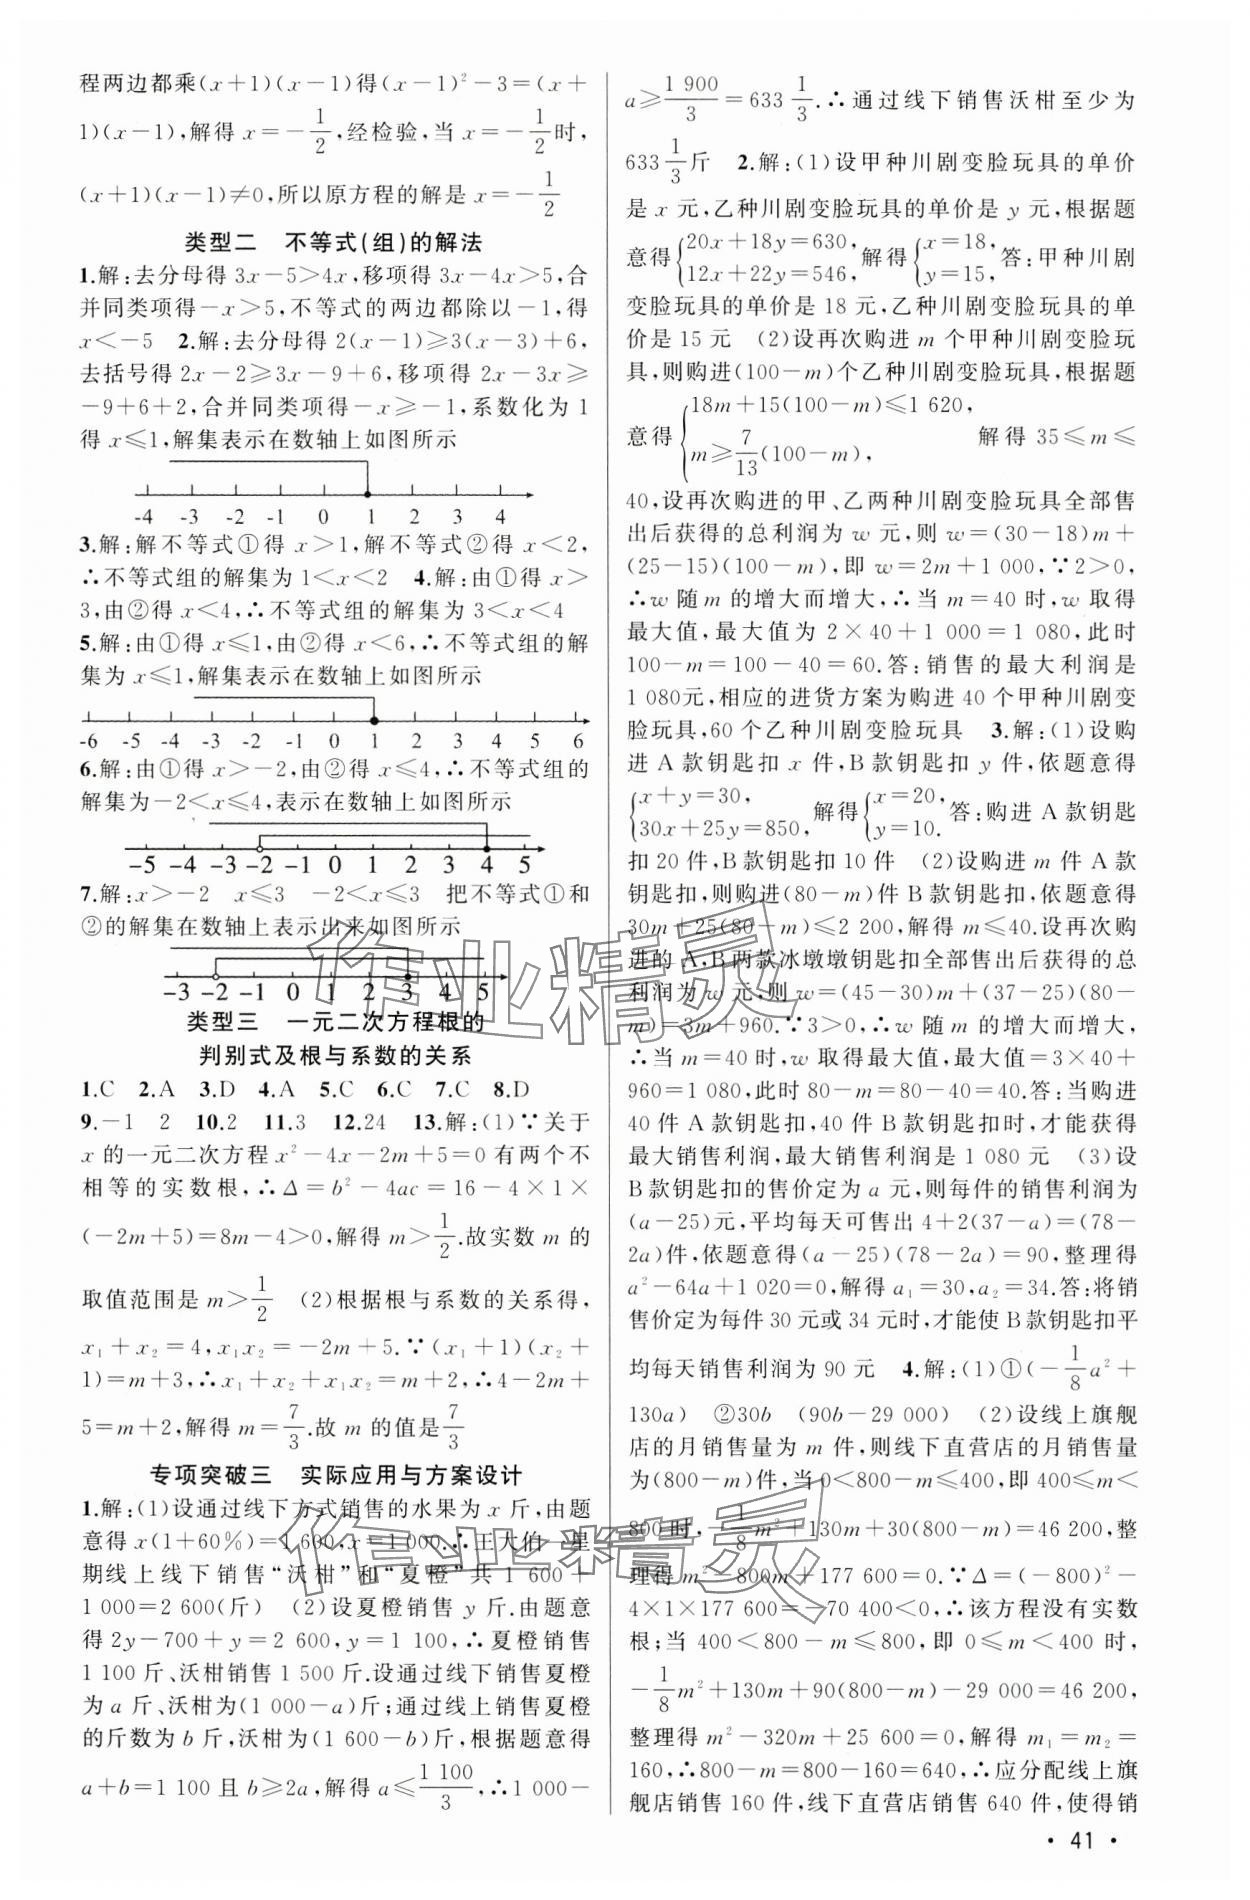 程两边都乘(x+1)(x-1)得(x-1)²-3=(x+
1)(x-1),解得 x=-1/2,经检验,当 x=-1/2时,
(x+1)(x-1)≠0,所以原方程的解是 x=-1/2
类型二 不等式(组)的解法
1.解:去分母得 3x-5>4x,移项得 3x-4x>5,合
并同类项得-x>5,不等式的两边都除以-1,得
x<-5 2.解:去分母得 2(x-1)≥3(x-3)+6,
去括号得 2x-2≥3x-9+6,移项得 2x-3x≥
-9+6+2,合并同类项得-x≥-1,系数化为 1
得 x≤1,解集表示在数轴上如图所示
-4 -3 -2 -1 0 1 2 3 4
3.解:解不等式①得 x>1,解不等式②得 x<2,
∴不等式组的解集为 1<x<2 4.解:由①得 x>
3,由②得 x<4,∴不等式组的解集为 3<x<4
5.解:由①得 x≤1,由②得 x<6,∴不等式组的解
集为 x≤1,解集表示在数轴上如图所示
-6 -5 -4 -3 -2 -1 0 1 2 3 4 5 6
6.解:由①得 x>-2,由②得 x≤4,∴不等式组的
解集为-2<x≤4,表示在数轴上如图所示
-5 -4 -3 -2 -1 0 1 2 3 4 5
7.解:x>-2 x≤3 -2<x≤3 把不等式①和
②的解集在数轴上表示出来如图所示
-3 -2 -1 0 1 2 3 4 5
类型三 一元二次方程根的
判别式及根与系数的关系
1.C 2.A 3.D 4.A 5.C 6.C 7.C 8.D
9.-1 2 10.2 11.3 12.24 13.解:(1)∵关于
x 的一元二次方程 x²-4x-2m+5=0 有两个不
相等的实数根,∴Δ=b²-4ac=16-4×1×
(-2m+5)=8m-4>0,解得 m>1/2.故实数 m 的
取值范围是 m>1/2 (2)根据根与系数的关系得,
x₁+x₂=4,x₁x₂=-2m+5.∵(x₁+1)(x₂+
1)=m+3,∴x₁+x₂+x₁x₂=m+2,∴4-2m+
5=m+2,解得 m=7/3.故 m 的值是7/3
专项突破三 实际应用与方案设计
1.解:(1)设通过线下方式销售的水果为 x 斤,由题
意得 x(1+60%)=1 600,x=1 000.∴王大伯一星
期线上线下销售“沃柑”和“夏橙”共 1 600+
1 000=2 600(斤) (2)设夏橙销售 y 斤.由题意
得 2y-700+y=2 600,y=1 100,∴夏橙销售
1 100 斤、沃柑销售 1 500 斤.设通过线下销售夏橙
为 a 斤、沃柑为(1 000-a)斤;通过线上销售夏橙
的斤数为 b 斤,沃柑为(1 600-b)斤,根据题意得
a+b=1 100 且 b≥2a,解得 a≤1 100/3,∴1 000-
a≥1 900/3=633 1/3.∴通过线下销售沃柑至少为
633 1/3斤 2.解:(1)设甲种川剧变脸玩具的单价
是 x 元,乙种川剧变脸玩具的单价是 y 元,根据题
意得{20x+18y=630, 12x+22y=546,解得{x=18, y=15,答:甲种川剧
变脸玩具的单价是 18 元,乙种川剧变脸玩具的单
价是 15 元 (2)设再次购进 m 个甲种川剧变脸玩
具,则购进(100-m)个乙种川剧变脸玩具,根据题
意得{18m+15(100-m)≤1 620, m≥7/13(100-m), 解得 35≤m≤
40,设再次购进的甲、乙两种川剧变脸玩具全部售
出后获得的总利润为 w 元,则 w=(30-18)m+
(25-15)(100-m),即 w=2m+1 000,∵2>0,
∴w 随 m 的增大而增大,∴当 m=40 时,w 取得
最大值,最大值为 2×40+1 000=1 080,此时
100-m=100-40=60.答:销售的最大利润是
1 080元,相应的进货方案为购进 40 个甲种川剧变
脸玩具,60 个乙种川剧变脸玩具 3.解:(1)设购
进 A 款钥匙扣 x 件,B 款钥匙扣 y 件,依题意得
{x+y=30, 30x+25y=850,解得{x=20, y=10.答:购进 A 款钥匙
扣 20 件,B 款钥匙扣 10 件 (2)设购进 m 件 A 款
钥匙扣,则购进(80-m)件 B 款钥匙扣,依题意得
30m+25(80-m)≤2 200,解得 m≤40.设再次购
进的 A,B 两款冰墩墩钥匙扣全部售出后获得的总
利润为 w 元,则 w=(45-30)m+(37-25)(80-
m)=3m+960.∵3>0,∴w 随 m 的增大而增大,
∴当 m=40 时,w 取得最大值,最大值=3×40+
960=1 080,此时 80-m=80-40=40.答:当购进
40 件 A 款钥匙扣,40 件 B 款钥匙扣时,才能获得
最大销售利润,最大销售利润是 1 080 元 (3)设
B 款钥匙扣的售价定为 a 元,则每件的销售利润为
(a-25)元,平均每天可售出 4+2(37-a)=(78-
2a)件,依题意得(a-25)(78-2a)=90,整理得
a²-64a+1 020=0,解得 a₁=30,a₂=34.答:将销
售价定为每件 30 元或 34 元时,才能使 B 款钥匙扣平
均每天销售利润为 90 元 4.解:(1)①(-1/8a²+
130a) ②30b (90b-29 000) (2)设线上旗舰
店的月销售量为 m 件,则线下直营店的月销售量
为(800-m)件,当0<800-m≤400,即 400≤m<
800 时,-1/8m²+130m+30(800-m)=46 200,整
理得 m²-800m+177 600=0.∵Δ=(-800)²-
4×1×177 600=-70 400<0,∴该方程没有实数
根;当 400<800-m≤800,即 0≤m<400 时,
-1/8m²+130m+90(800-m)-29 000=46 200,
整理得 m²-320m+25 600=0,解得 m₁=m₂=
160,∴800-m=800-160=640,∴应分配线上旗
舰店销售 160 件,线下直营店销售 640 件,使得销
· 41 ·
作业精灵
作业精灵